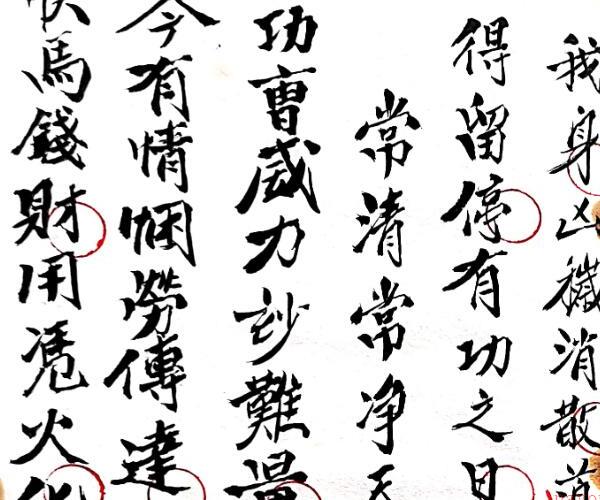 我身凶穢消散道
得留停有功之日
常清常净天
功曹威力妙難量
今有情悃勞傳達
馬錢財用憑火化